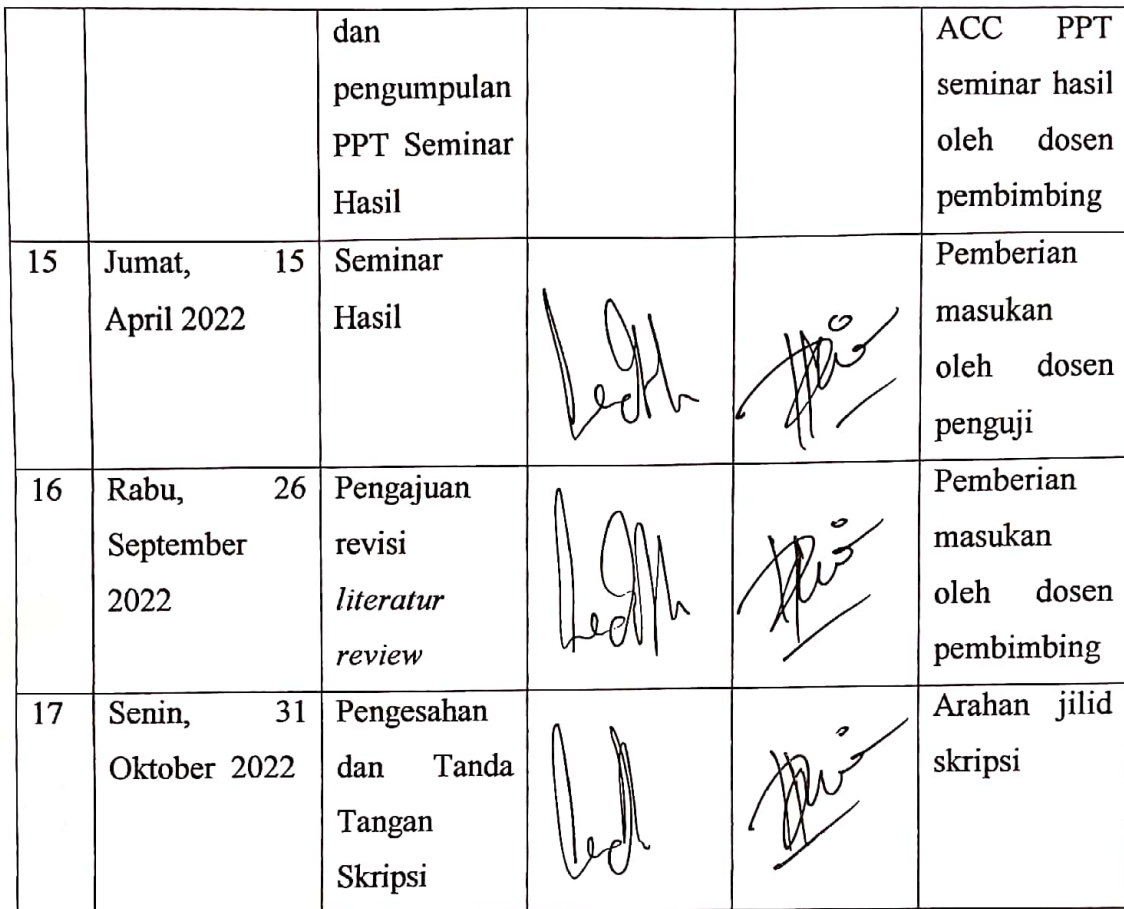 dan
pengumpulan
PPT Seminar
Hasil
ACC PPT
seminar hasil
oleh dosen
pembimbing
15
Jumat, 15
April 2022
Seminar
Hasil
Pemberian
masukan
oleh dosen
penguji
16
Rabu, 26
September
2022
Pengajuan
revisi
literatur
review
Pemberian
masukan
oleh dosen
pembimbing
17
Senin, 31
Oktober 2022
Pengesahan
dan Tanda
Tangan
Skripsi
Arahan jilid
skripsi